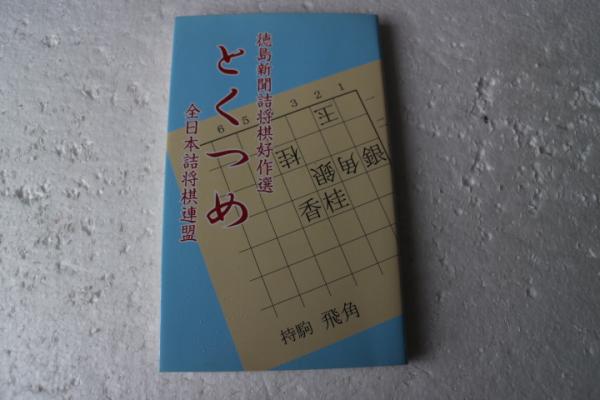 徳島新聞詰将棋好作選
とくつめ
全日本詰将棋連盟
6 5 3 2 1
玉
桂
銀 角
香 桂
持駒 飛角